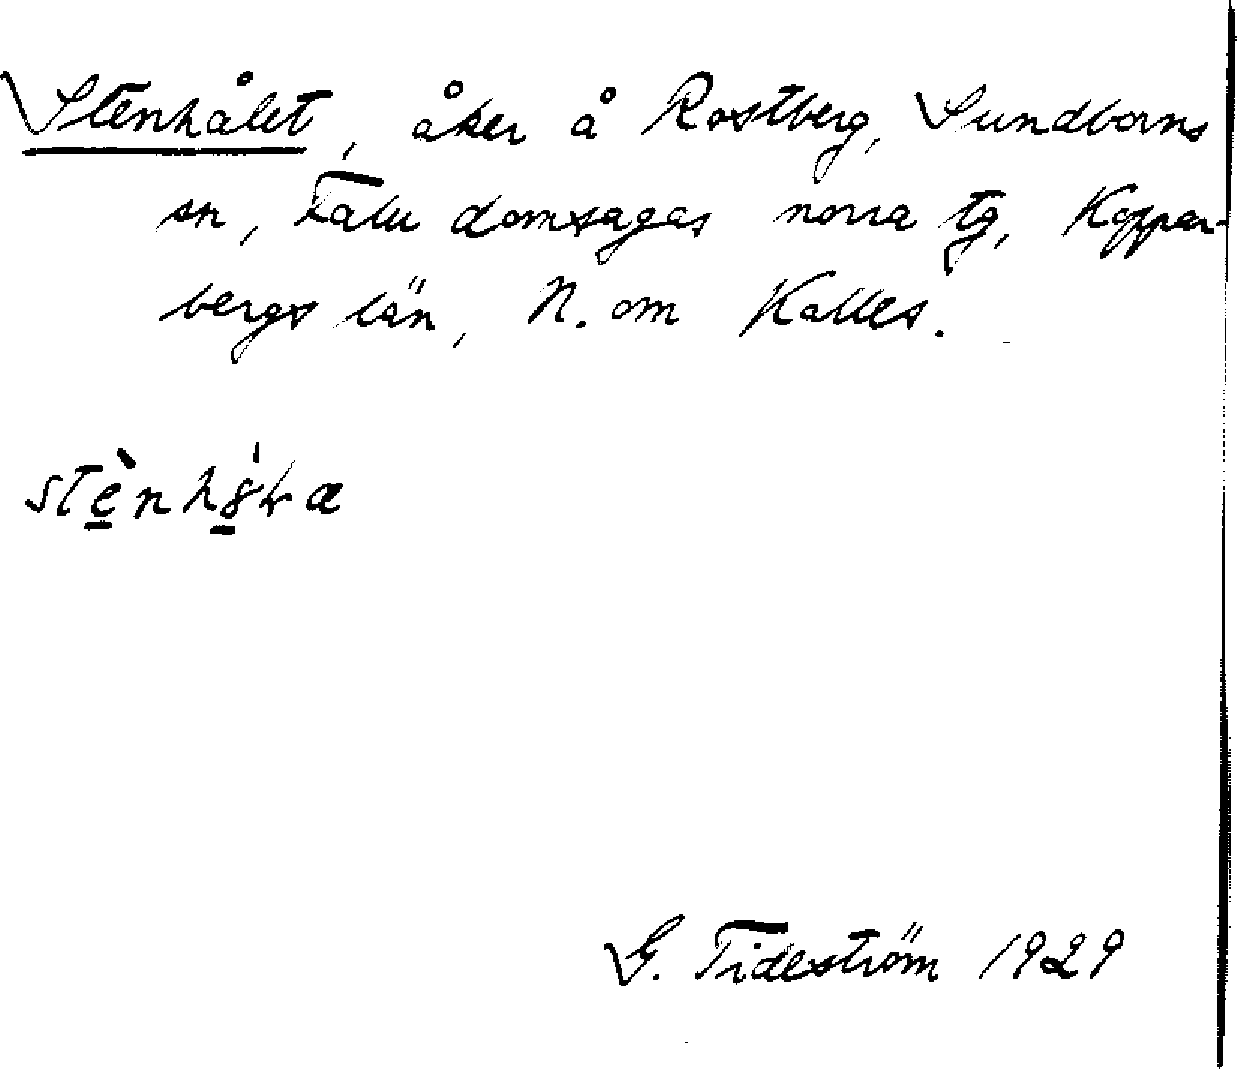 Stenhålet, åker å Rostberg, Sundborns
sn, Falu domsagas norra tg, Koppar-
bergs län, N. om Kalles.
G. Tideström 1929